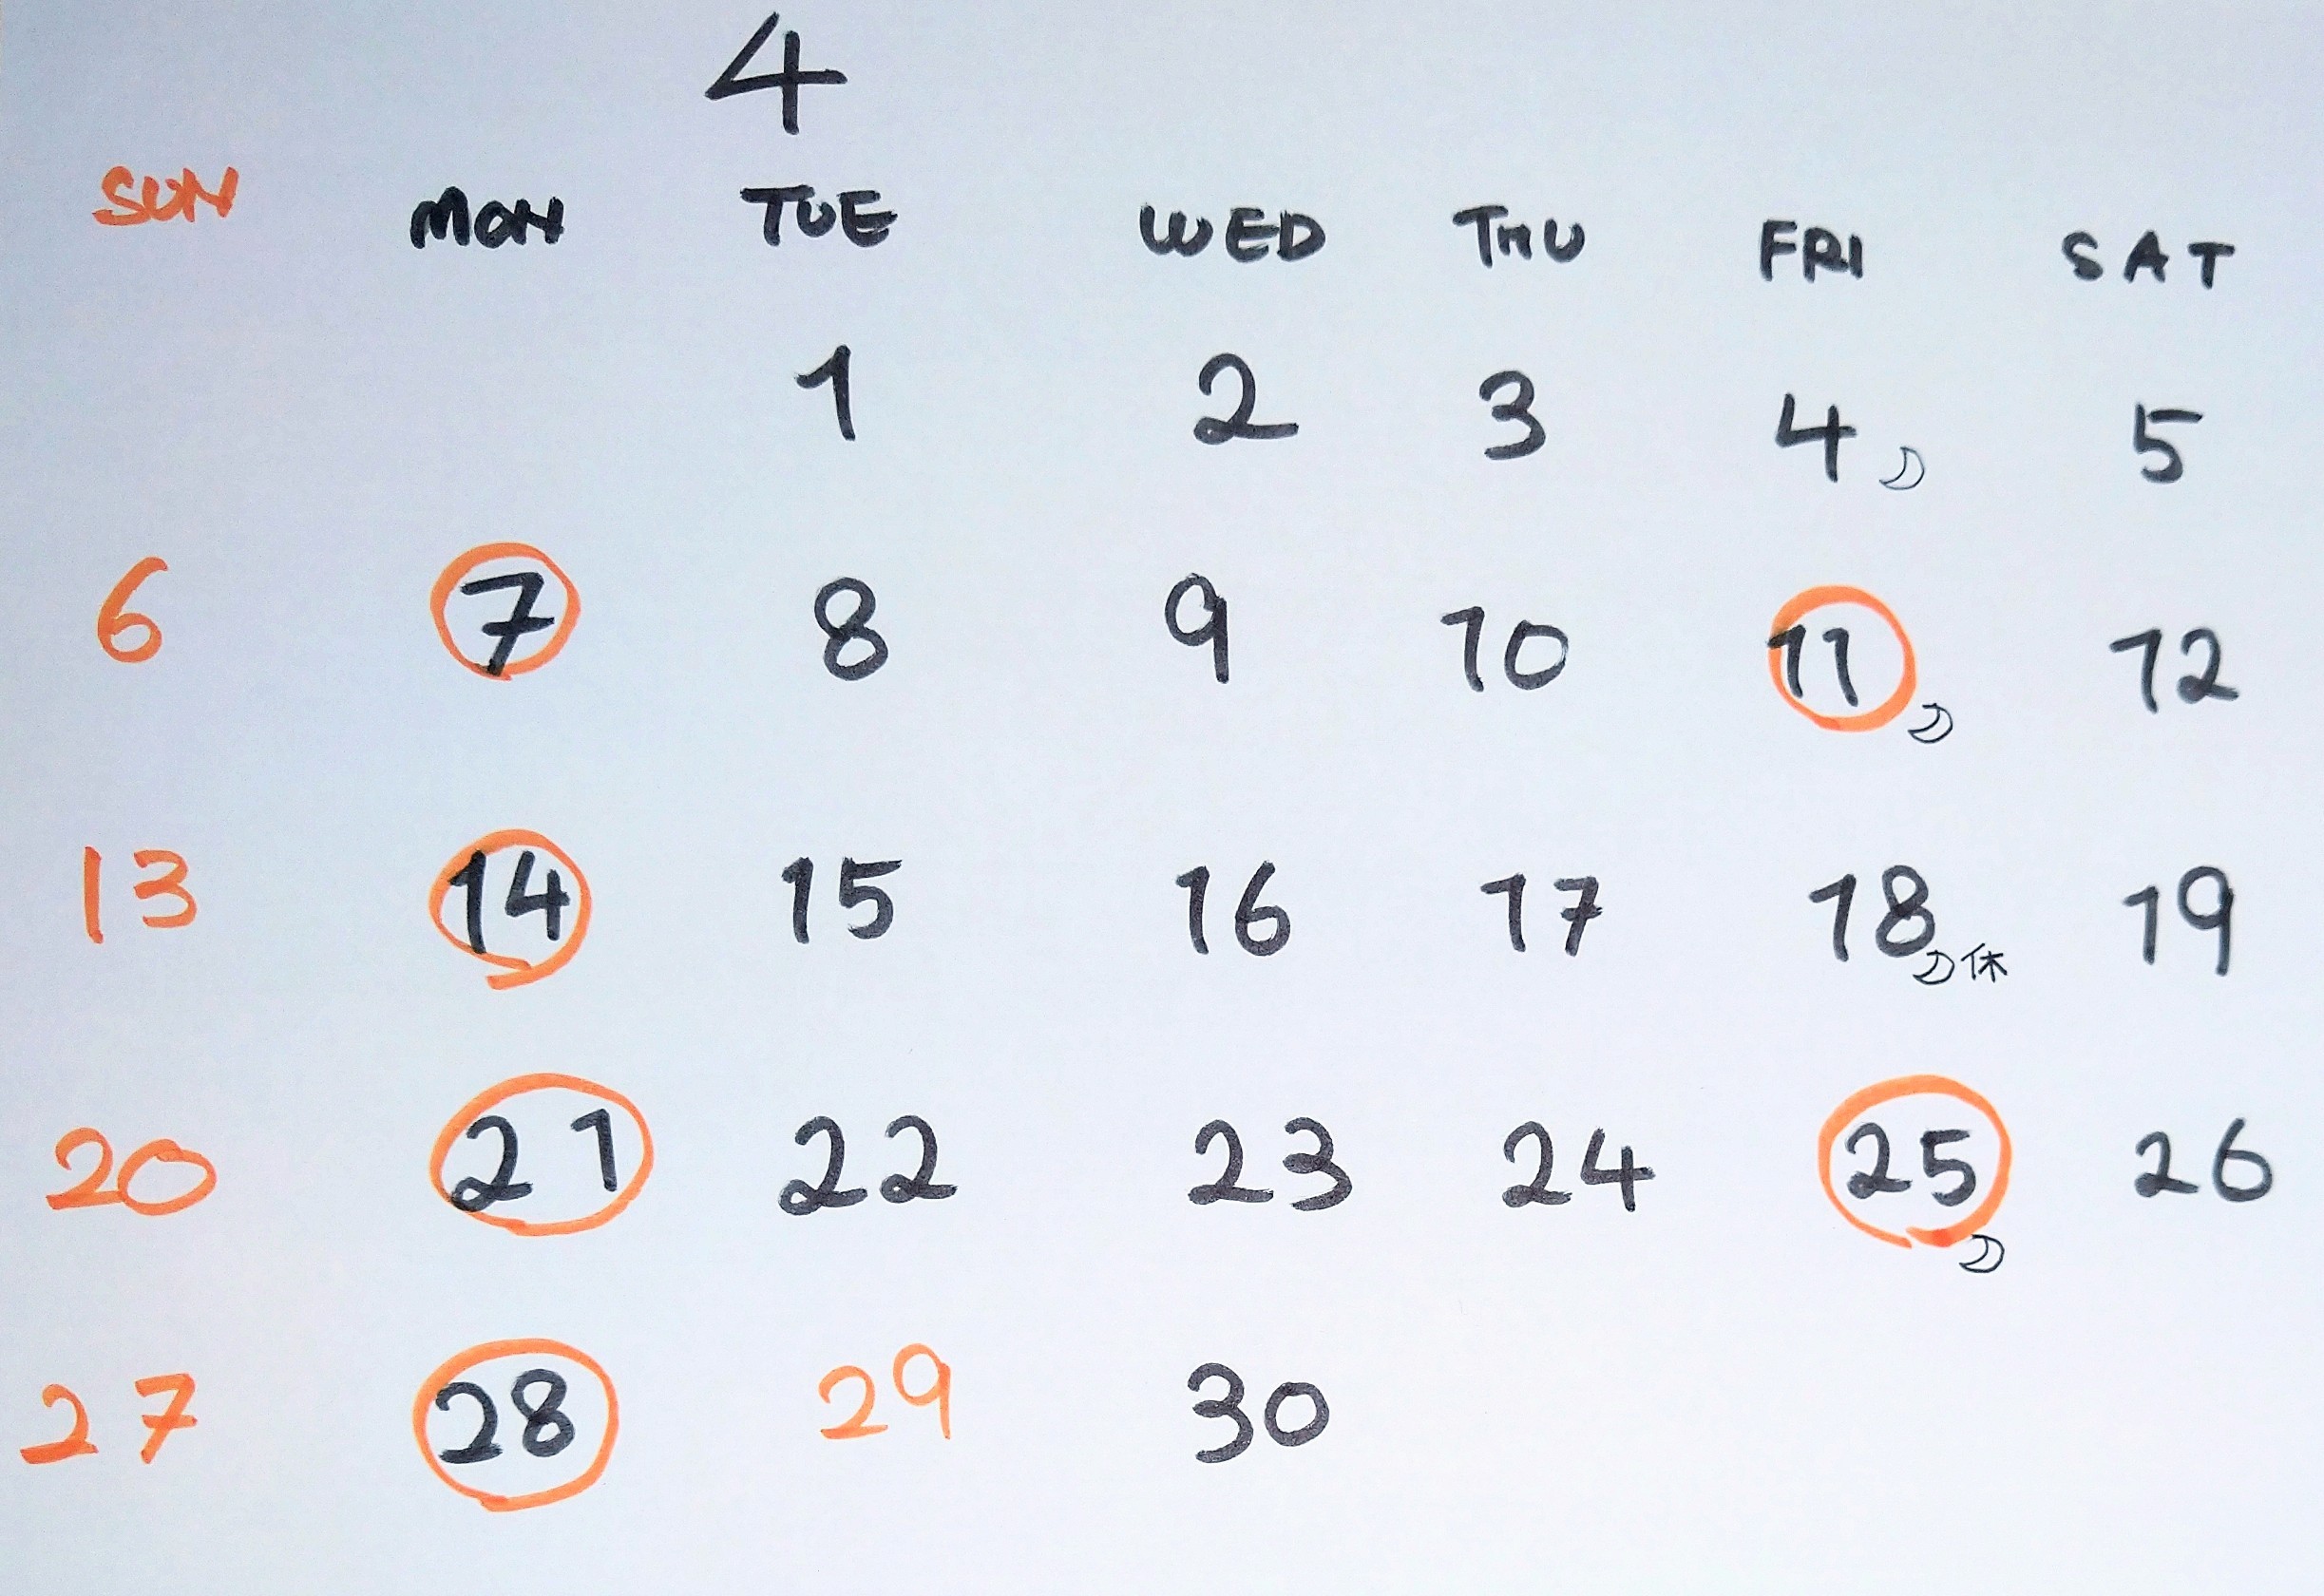 4
SUN MON TUE WED THU FRI SAT
1 2 3 4 5
6 7 8 9 10 11 12
13 14 15 16 17 18 休 19
20 21 22 23 24 25 26
27 28 29 30